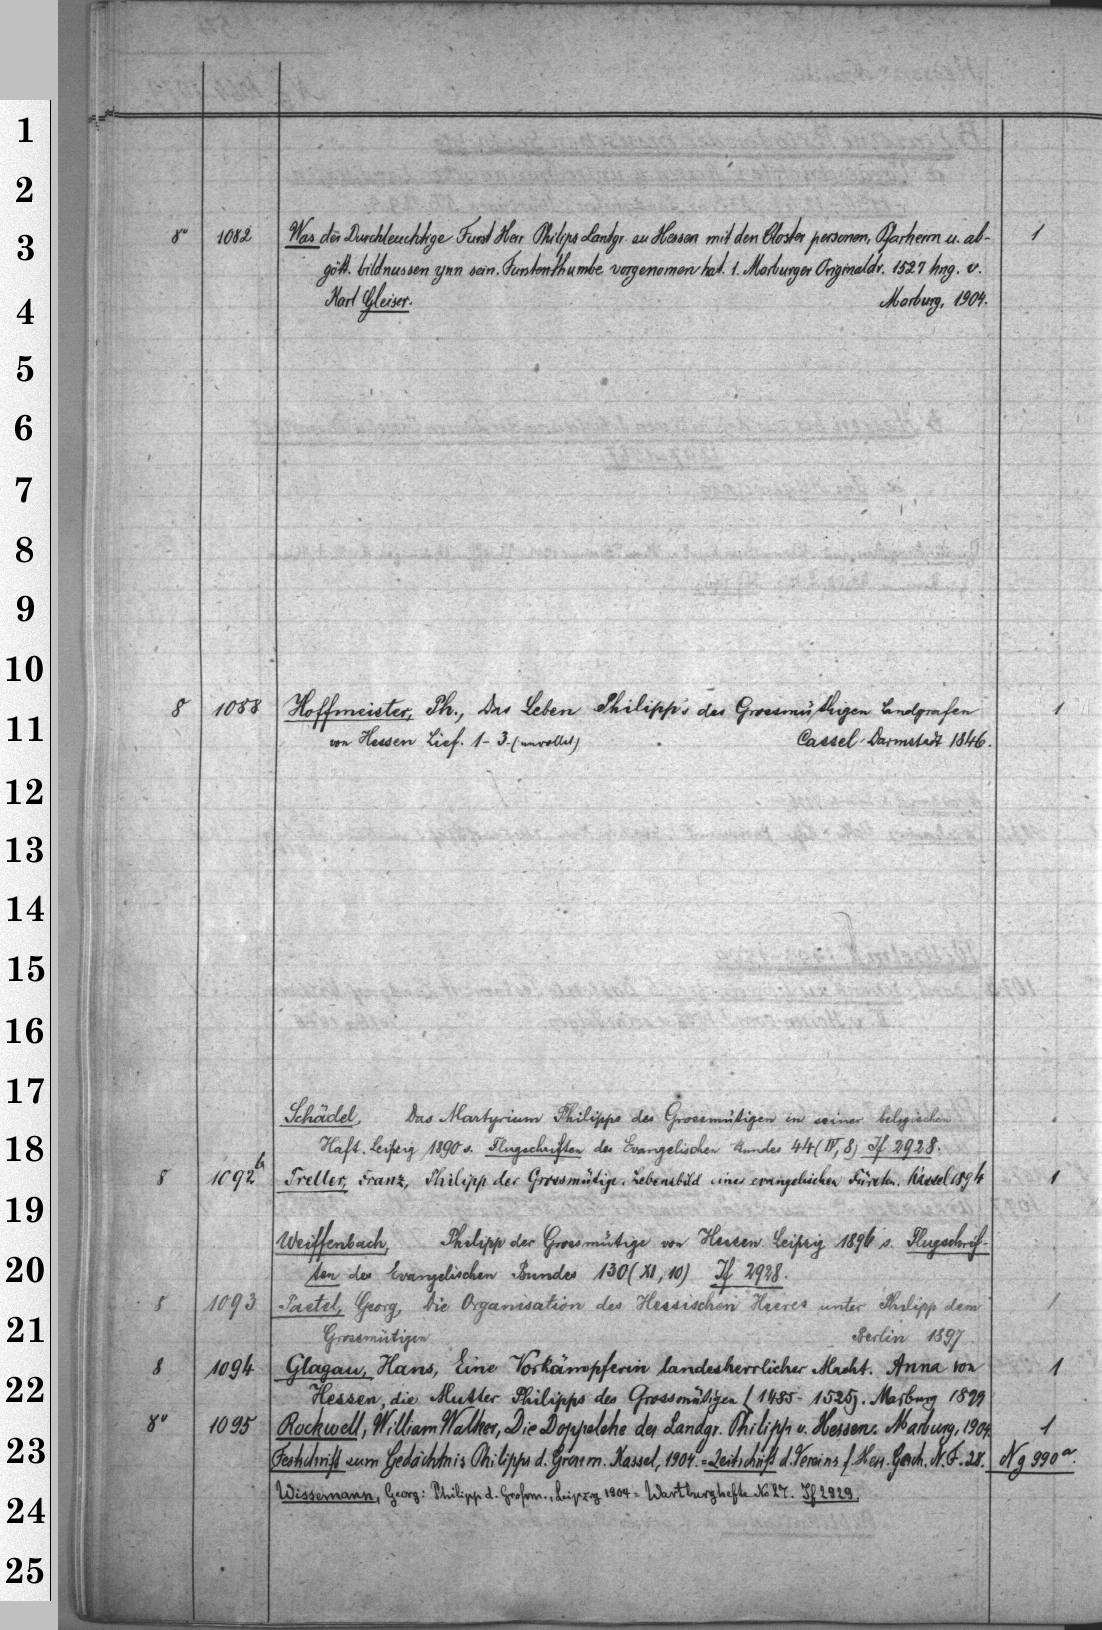 1
2
3
4
5
6
7
8
9
10
11
12
13
14
15
16
17
18
19
20
21
22
23
24
25
8° 1082 Was der Durchleuchtige Furst Herr Philips Lantgr. zu Hessen mit den Closter personen, Pfarherrn u. ab- 1
gött. bildnussen ynn sein. Furstenthumbe vorgenomen hat. 1. Marburger Originaldr. 1527 hng. v.
Karl Gleiser. Marburg, 1904.
8 1088 Hoffmeister, Ph., Das Leben Philipp's des Grossmüthigen Landgrafen 1
von Hessen Lief. 1-3. (unvollst) Cassel-Darmstadt 1846.
Schädel, Das Martyrium Philipps des Grossmütigen in seiner belgischen
Haft. Leipzig 1890 s. Flugschriften des Evangelischen Bundes 44 (IV, 8) If 2928.
8 1092 Treller, Franz, Philipp der Grossmütige. Lebensbild eines evangelischen Fürsten. Kassel 1894 1
Weiffenbach, Philipp der Grossmütige von Hessen. Leipzig 1896 s. Flugschrif-
ten des Evangelischen Bundes 130 (XI, 10) If 2928.
8 1093 Paetel, Georg, Die Organisation des Hessischen Heeres unter Philipp dem 1
Grossmütigen Berlin 1897.
8 1094 Glagau, Hans, Eine Vorkämpferin landesherrlicher Macht. Anna von 1
Hessen, die Mutter Philipps des Grossmütigen (1485-1525). Marburg 1899
8° 1095 Rockwell, William Walker, Die Doppelehe des Landgr. Philipp v. Hessen. Marburg, 1904. 1
Festschrift zum Gedächtnis Philipps d. Grossm. Kassel, 1904. = Zeitschrift d. Vereins f. Hess. Gesch. N. F. 28. Ng 990a.
Wissemann, Georg: Philipp d. Großm., Leipzig 1904 = Wartburghefte No 27. If 2929.